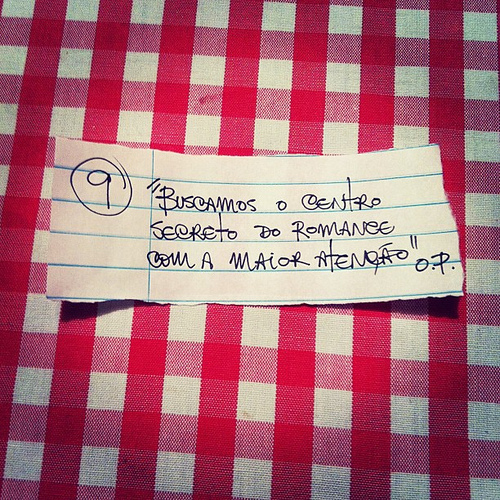 9
"BUSCAMOS O CENTRO
SECRETO DO ROMANCE
COM A MAIOR ATENÇÃO" O.P.